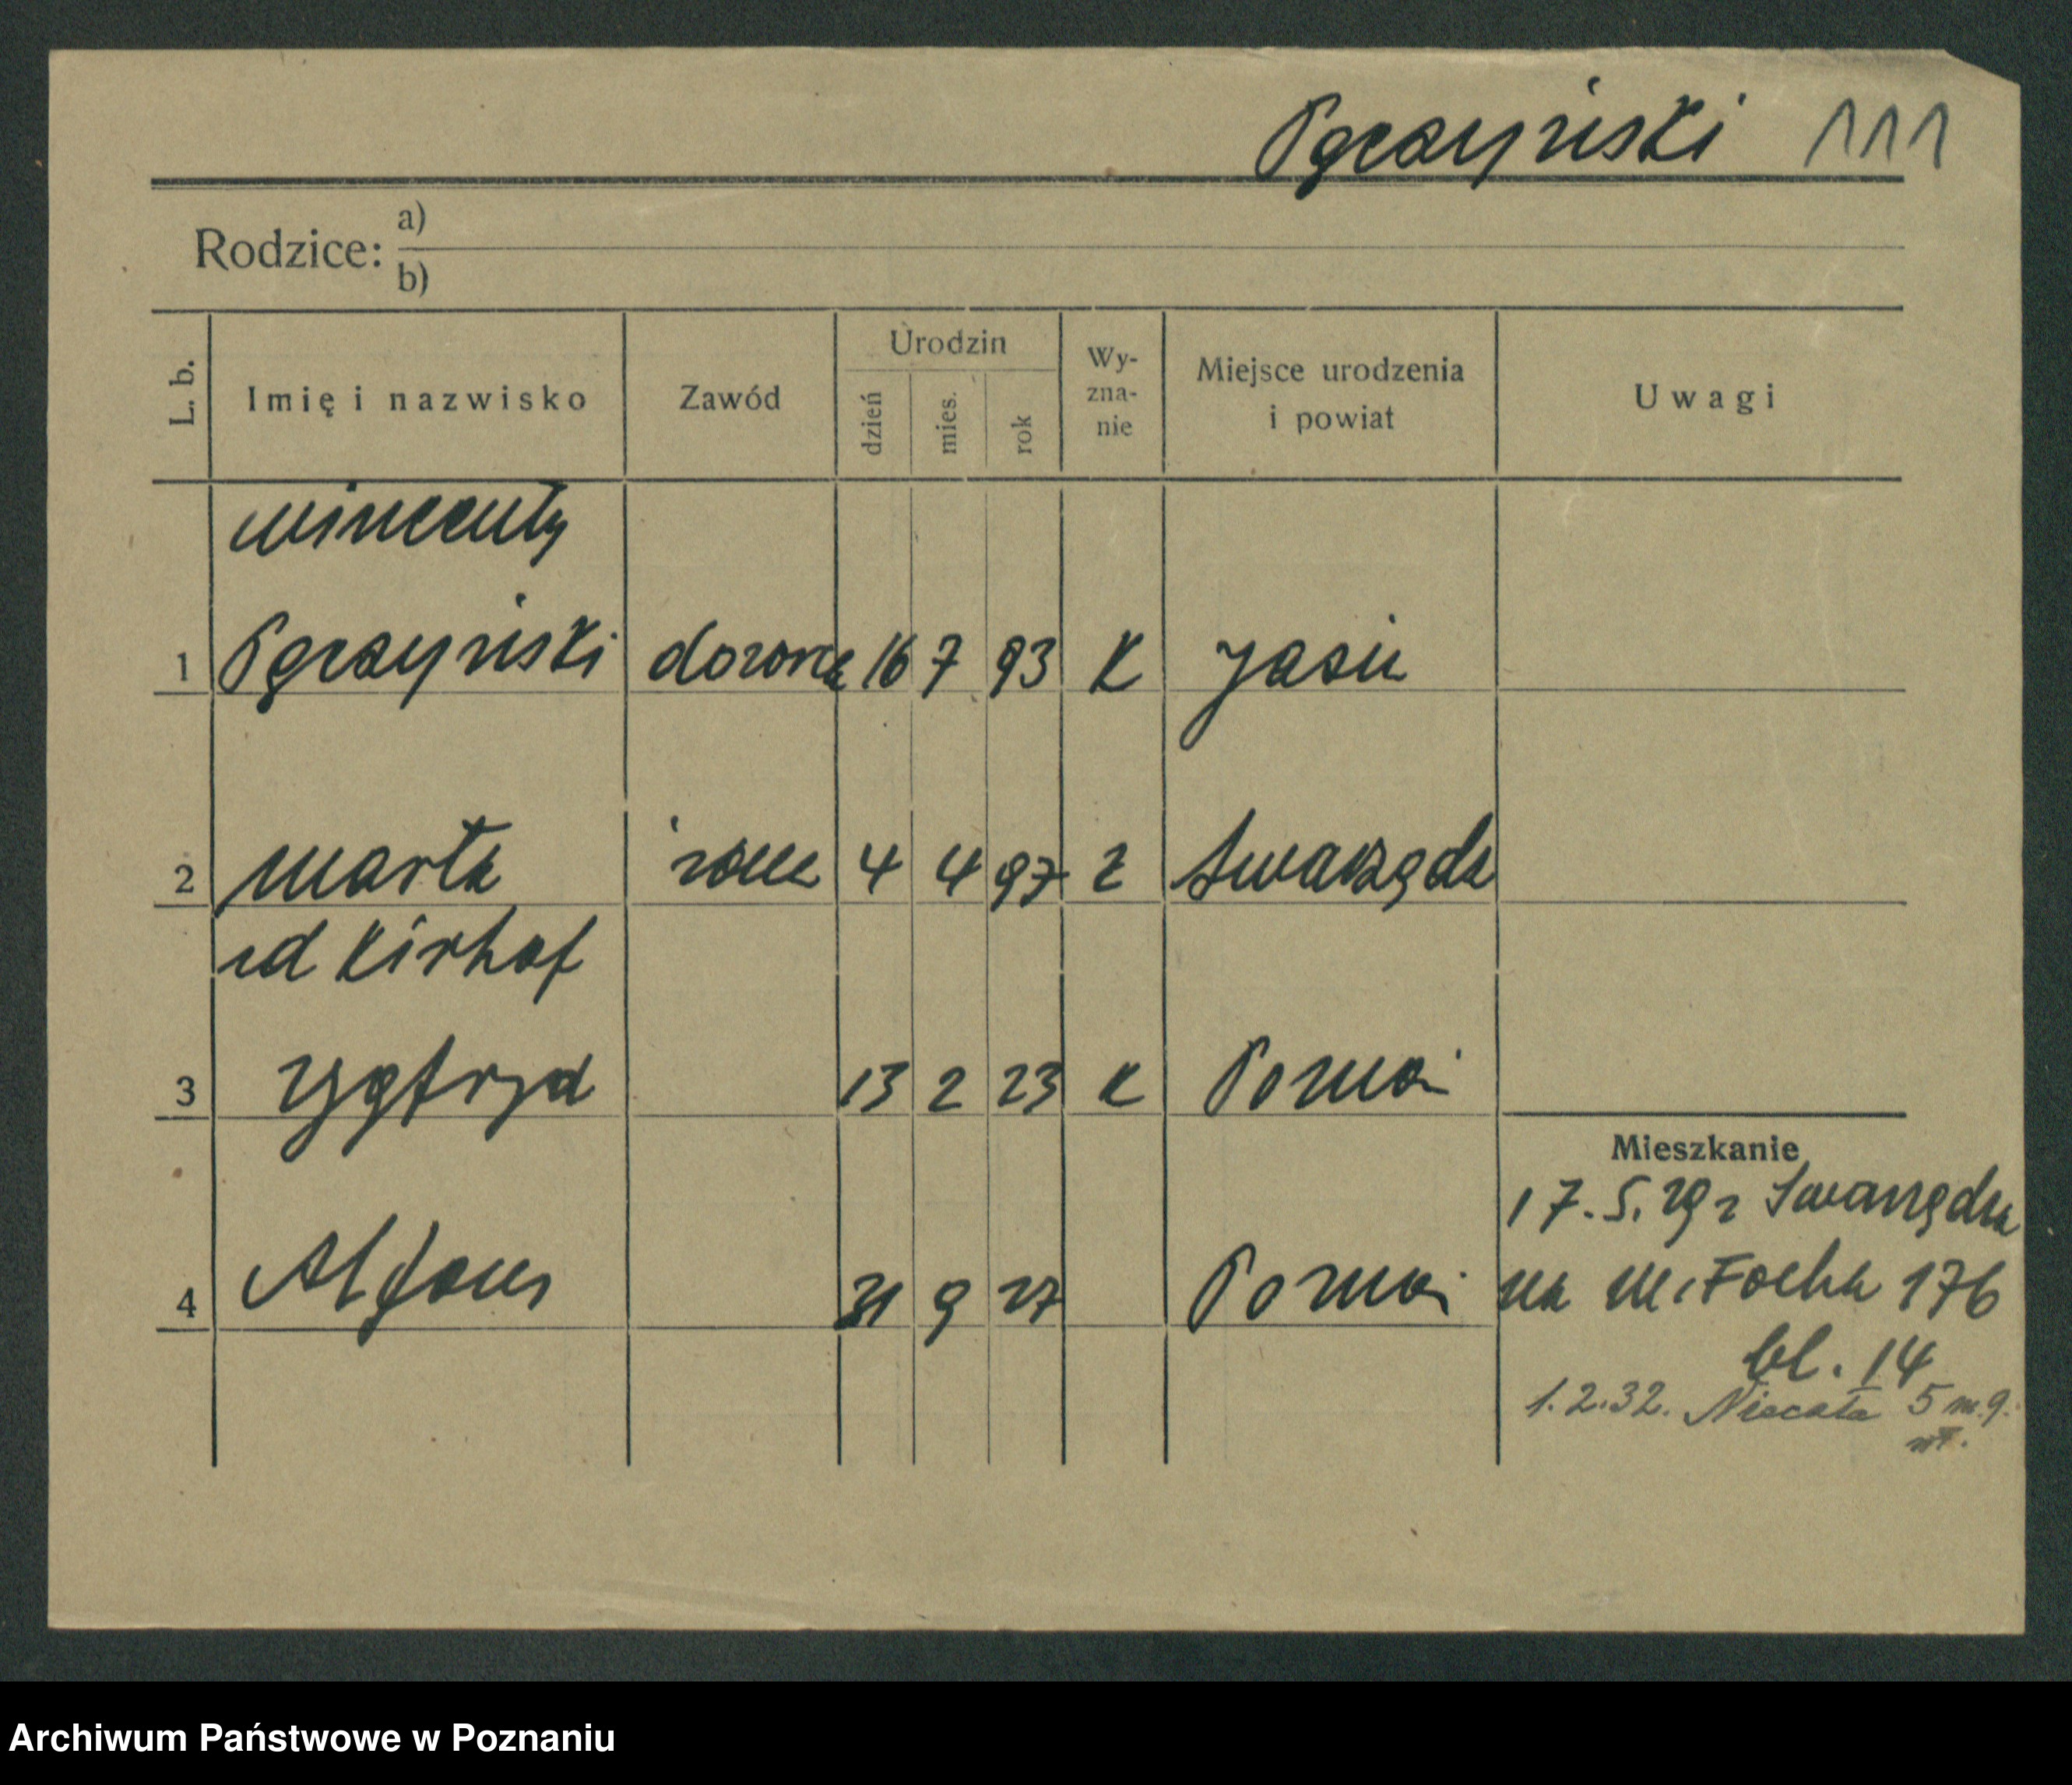 Pęczyński 111
Rodzice: a)
b)
L. b. Imię i nazwisko Zawód Urodzin dzień mies. rok Wy-zna-nie Miejsce urodzenia i powiat Uwagi
Wincenty
1 Pęczyński dozorca 16 7 93 K Jasin
2 Marta żona 4 4 97 Swarzędz
zd Kirhof
3 Zygfryd 13 2 23 K Poznań
Mieszkanie
17.5.29 z Swarzędza
4 Alfons 31 9 27 Poznań
na M. Focha 176
bl. 14
1.2.32. Niecała 5 m. 9.
Archiwum Państwowe w Poznaniu